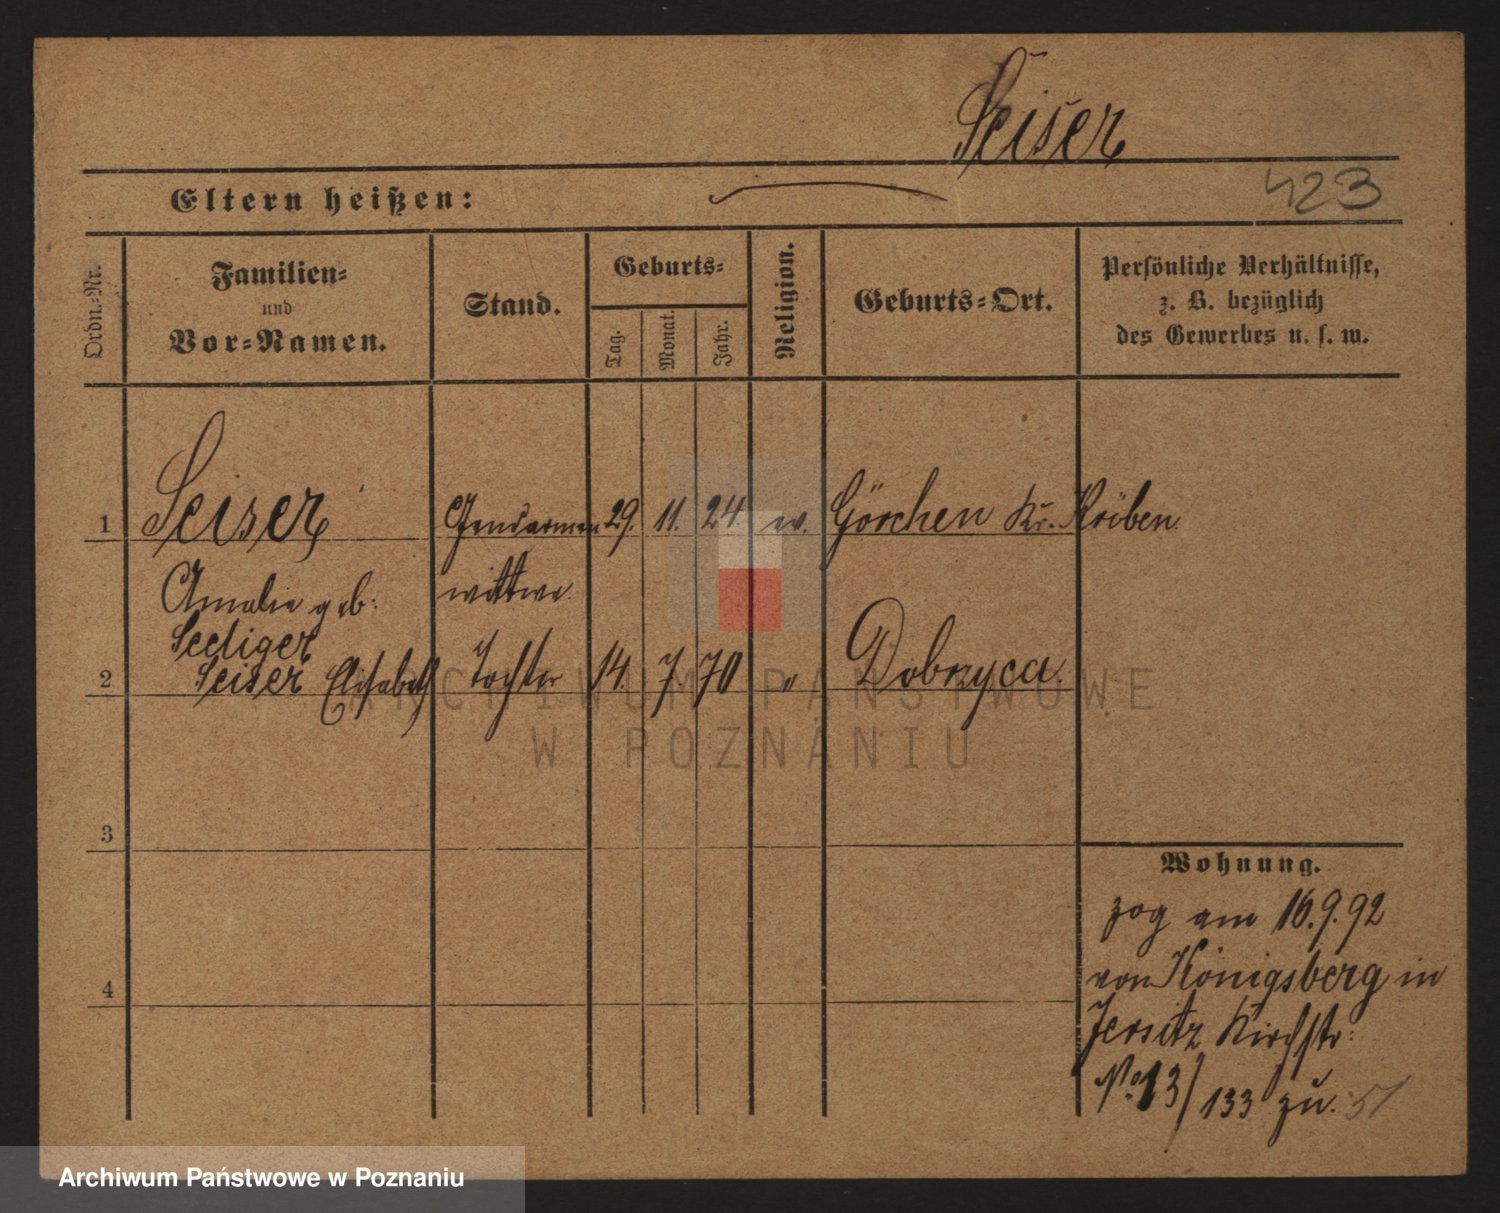 Seiser
Eltern heißen:
423
Ordn.-Nr.
Familien-
und
Vor-Namen.
Stand.
Geburts-
Tag.
Monat.
Jahr.
Religion.
Geburts-Ort.
Persönliche Verhältnisse,
z. B. bezüglich
des Gewerbes u. s. w.
1 Seiser Gendarmen 29. 11. 24. ev. Görchen Kr. Kröben
Amalie geb: wittwe
Seeliger
2 Seiser Elisabeth Tochter 14. 7. 70 " Dobrzyca.
ARCHIWUM PAŃSTWOWE
W POZNANIU
3
Wohnung.
zog am 16.9.92
von Königsberg in
4
Jersitz Kirchstr:
No. 13/133 zu. 51
Archiwum Państwowe w Poznaniu